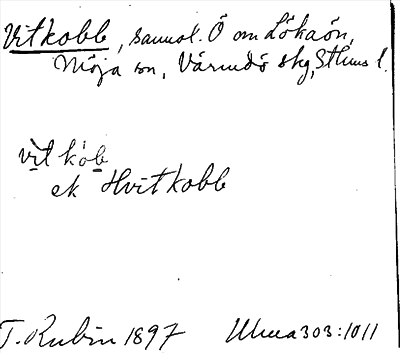 Vitkobb, sannol. Ö om Lökaön,
Möja sn, Värmdö skg, Sthlms l.
vi̇t kȯb
ek Hvitkobb
T. Rubin 1897 Uma 303:1011